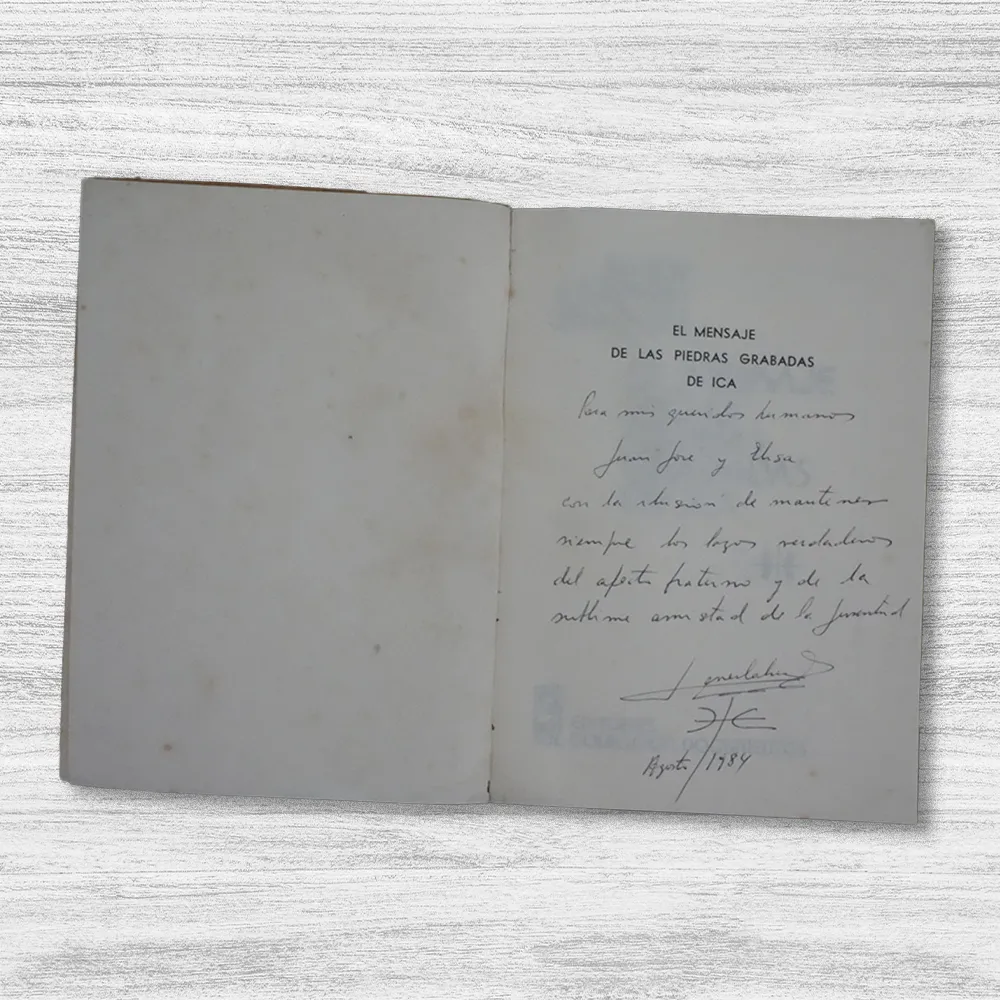 EL MENSAJE
DE LAS PIEDRAS GRABADAS
DE ICA
Para mis queridos hermanos
Juan José y Elisa
con la ilusión de mantener
siempre los lazos verdaderos
del afecto fraterno y de la
sublime amistad de la juventud
Agosto/1984